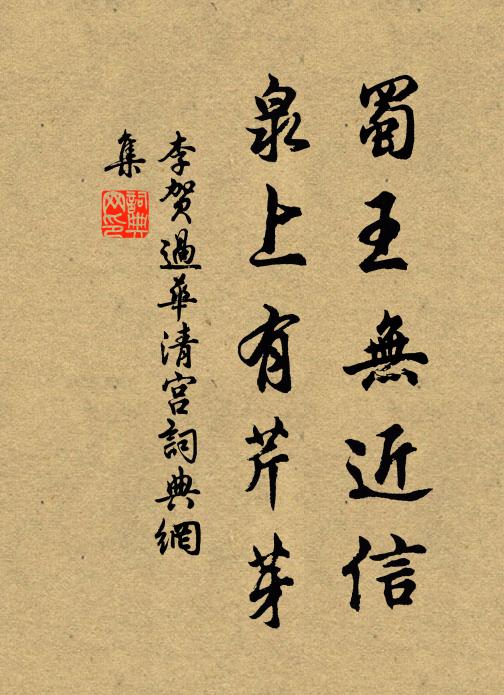 蜀王無近信
泉上有芹芽
李賀過華清宮詞典網
集
詞典
网印